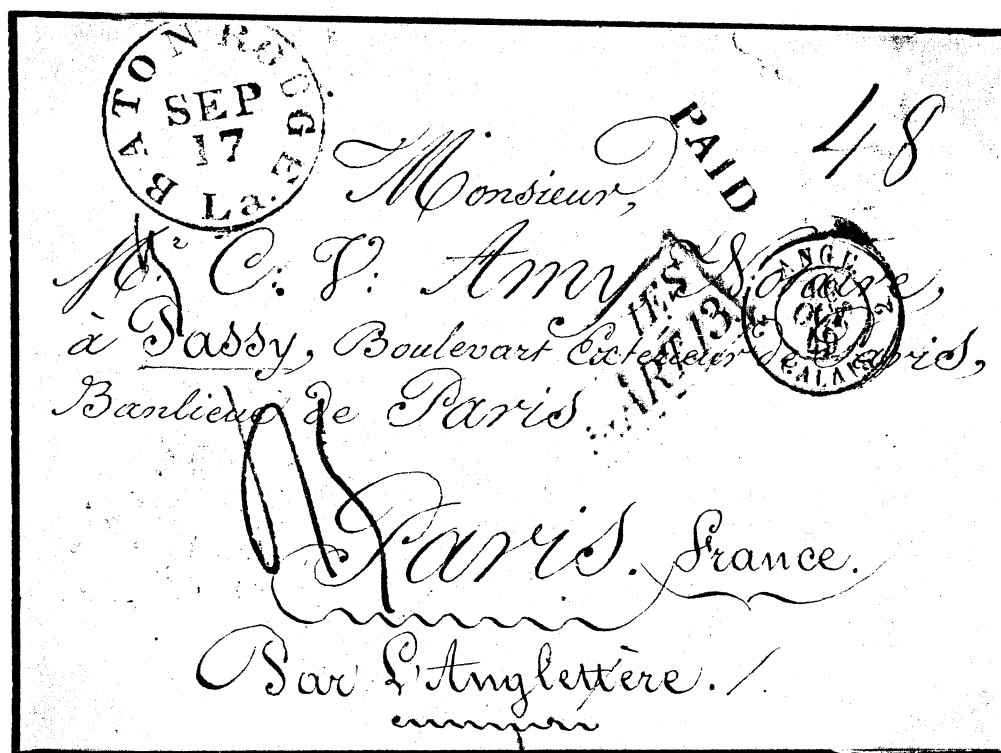 BATON ROUGE
La.
SEP
17
PAID
48
Monsieur,
Mr. C. V. Amy Notaire,
à Passy, Boulevart Exterieur de Paris,
Banlieue de Paris
IES
ART 13
ANGL.
2 2
OCT
CALAIS
Paris. France.
Par L'Anglettère.